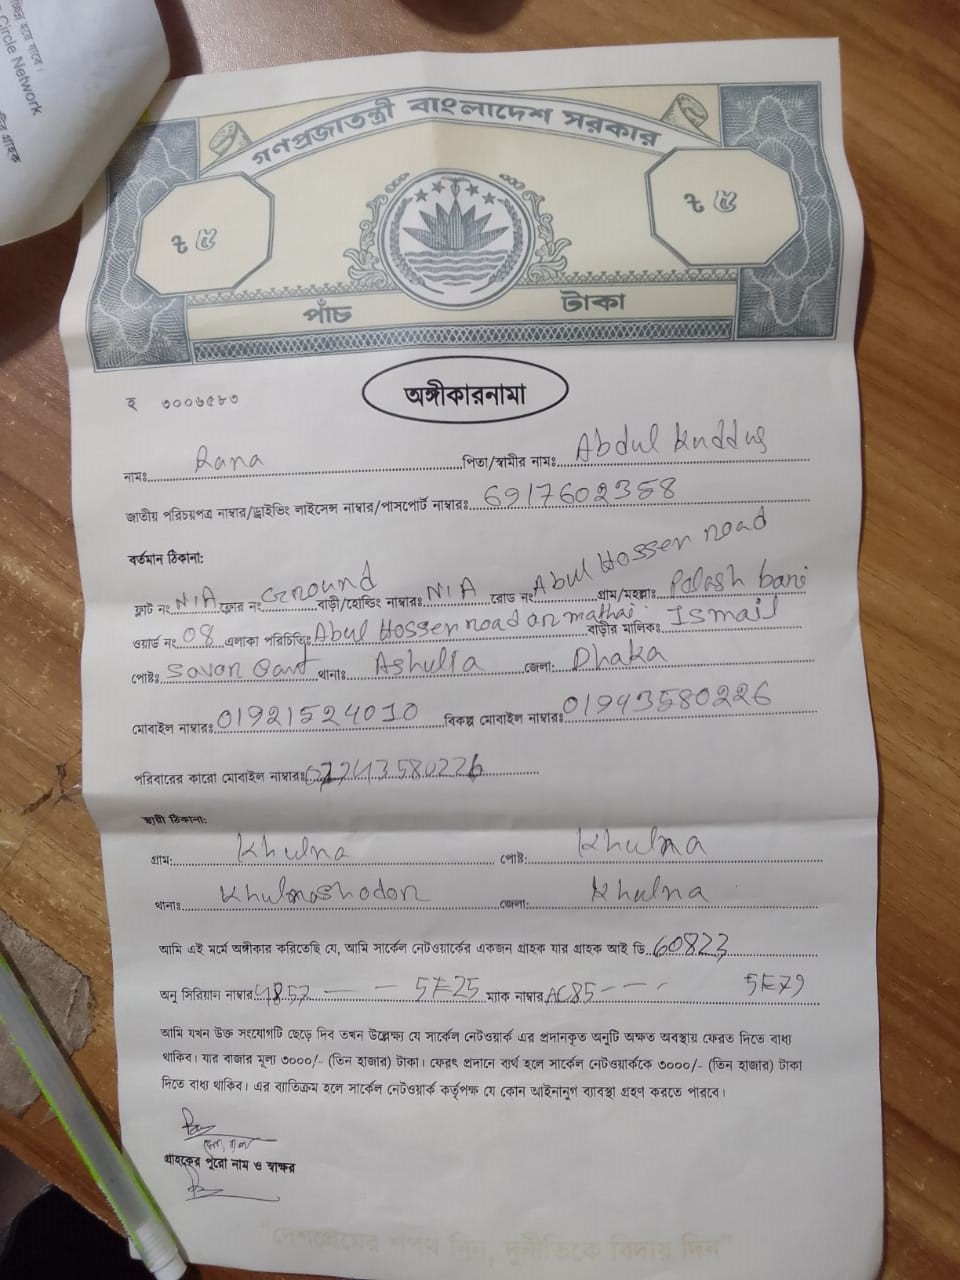 ন্ন হয়ে যাবে।
Circle Network
গ্রাহক
গণপ্রজাতন্ত্রী বাংলাদেশ সরকার
৳ ৫
৳ ৫
পাঁচ টাকা
অঙ্গীকারনামা
হ ৩০০৬৫৮৩
নামঃ Rana পিতা/স্বামীর নামঃ Abdul Kuddus
জাতীয় পরিচয়পত্র নাম্বার/ড্রাইভিং লাইসেন্স নাম্বার/পাসপোর্ট নাম্বারঃ 6917602358
বর্তমান ঠিকানা:
ফ্লাট নং N/A ফ্লোর নং Ground বাড়ী/হোল্ডিং নাম্বারঃ N/A রোড নং Abul Hossen road গ্রাম/মহল্লাঃ Polash bari
ওয়ার্ড নং 08 এলাকা পরিচিতিঃ Abul Hossen road বাড়ীর মালিকঃ Ismail
পোষ্টঃ Savar থানাঃ Ashulia জেলা: Dhaka
মোবাইল নাম্বারঃ 01921524010 বিকল্প মোবাইল নাম্বারঃ 01943580226
পরিবারের কারো মোবাইল নাম্বারঃ
স্থায়ী ঠিকানা:
গ্রাম: Khulna পোষ্ট: Khulna
থানাঃ Khulnashodor জেলা: Khulna
আমি এই মর্মে অঙ্গীকার করিতেছি যে, আমি সার্কেল নেটওয়ার্কের একজন গ্রাহক যার গ্রাহক আই ডি 60823
অনু সিরিয়াল নাম্বার 4857 -- - 5F25 ম্যাক নাম্বার AC85 - - - 5F79
আমি যখন উক্ত সংযোগটি ছেড়ে দিব তখন উল্লেক্ষ্য যে সার্কেল নেটওয়ার্ক এর প্রদানকৃত অনুটি অক্ষত অবস্থায় ফেরত দিতে বাধ্য
থাকিব। যার বাজার মূল্য ৩০০০/- (তিন হাজার) টাকা। ফেরৎ প্রদানে ব্যর্থ হলে সার্কেল নেটওয়ার্ককে ৩০০০/- (তিন হাজার) টাকা
দিতে বাধ্য থাকিব। এর ব্যতিক্রম হলে সার্কেল নেটওয়ার্ক কর্তৃপক্ষ যে কোন আইনানুগ ব্যাবস্থা গ্রহণ করতে পারবে।
গ্রাহকের পুরো নাম ও স্বাক্ষর
"দেশপ্রেমের শপথ নিন, দুর্নীতিকে বিদায় দিন"